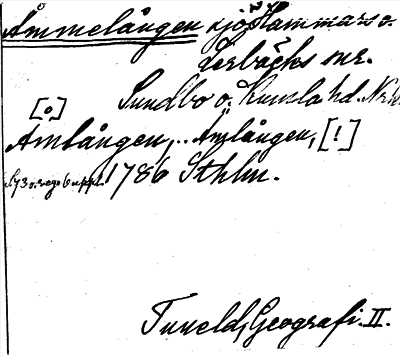 Åmmelången sjö Hammars o.
Lerbäcks snr.
Sundbo o. Kumla hd. När.
[o]
Amlången,.. Åmlången, [!]
S. 73 o. reg. 6 uppl. 1786 Sthlm.
Tuneld, Geografi. II.